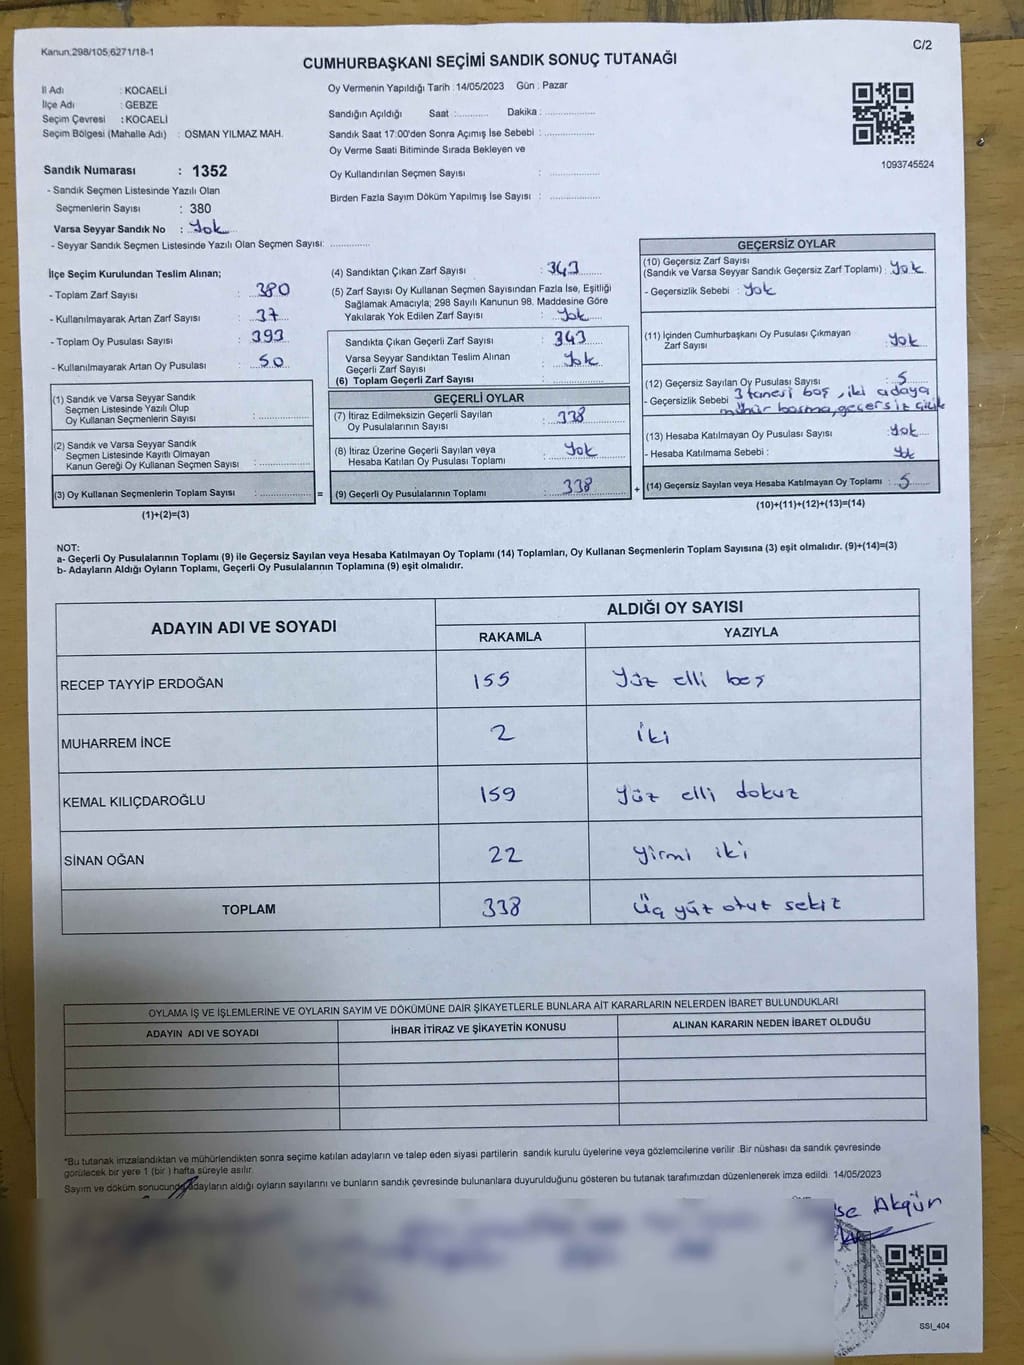 Kanun,298/105,6271/18-1
C/2
CUMHURBAŞKANI SEÇİMİ SANDIK SONUÇ TUTANAĞI
İl Adı : KOCAELİ
İlçe Adı : GEBZE
Seçim Çevresi : KOCAELİ
Seçim Bölgesi (Mahalle Adı) : OSMAN YILMAZ MAH.
Oy Vermenin Yapıldığı Tarih : 14/05/2023 Gün : Pazar
Sandığın Açıldığı Saat :........... Dakika :................
Sandık Saat 17:00'den Sonra Açımış İse Sebebi :................
Oy Verme Saati Bitiminde Sırada Bekleyen ve
Oy Kullandırılan Seçmen Sayısı :................
Birden Fazla Sayım Döküm Yapılmış İse Sayısı :................
1093745524
Sandık Numarası : 1352
- Sandık Seçmen Listesinde Yazılı Olan
Seçmenlerin Sayısı : 380
Varsa Seyyar Sandık No : Yok
- Seyyar Sandık Seçmen Listesinde Yazılı Olan Seçmen Sayısı: ............
İlçe Seçim Kurulundan Teslim Alınan;
- Toplam Zarf Sayısı : 380
- Kullanılmayarak Artan Zarf Sayısı : 37
- Toplam Oy Pusulası Sayısı : 393
- Kullanılmayarak Artan Oy Pusulası : 50
(1) Sandık ve Varsa Seyyar Sandık
Seçmen Listesinde Yazılı Olup
Oy Kullanan Seçmenlerin Sayısı :................
(2) Sandık ve Varsa Seyyar Sandık
Seçmen Listesinde Kayıtlı Olmayan
Kanun Gereği Oy Kullanan Seçmen Sayısı :................
(3) Oy Kullanan Seçmenlerin Toplam Sayısı :................ =
(1)+(2)=(3)
(4) Sandıktan Çıkan Zarf Sayısı : 343
(5) Zarf Sayısı Oy Kullanan Seçmen Sayısından Fazla İse, Eşitliği
Sağlamak Amacıyla; 298 Sayılı Kanunun 98. Maddesine Göre
Yakılarak Yok Edilen Zarf Sayısı : Yok
Sandıkta Çıkan Geçerli Zarf Sayısı : 343
Varsa Seyyar Sandıktan Teslim Alınan : Yok
Geçerli Zarf Sayısı
(6) Toplam Geçerli Zarf Sayısı :................
GEÇERLİ OYLAR
(7) İtiraz Edilmeksizin Geçerli Sayılan : 338
Oy Pusulalarının Sayısı
(8) İtiraz Üzerine Geçerli Sayılan veya : Yok
Hesaba Katılan Oy Pusulası Toplamı
(9) Geçerli Oy Pusulalarının Toplamı : 338 +
GEÇERSİZ OYLAR
(10) Geçersiz Zarf Sayısı
(Sandık ve Varsa Seyyar Sandık Geçersiz Zarf Toplamı) : Yok
- Geçersizlik Sebebi : Yok
(11) İçinden Cumhurbaşkanı Oy Pusulası Çıkmayan
Zarf Sayısı : Yok
(12) Geçersiz Sayılan Oy Pusulası Sayısı : 5
- Geçersizlik Sebebi 3 tanesi boş, iki adaya
mühür basma, geçersiz
(13) Hesaba Katılmayan Oy Pusulası Sayısı : Yok
- Hesaba Katılmama Sebebi : Yok
(14) Geçersiz Sayılan veya Hesaba Katılmayan Oy Toplamı : 5
(10)+(11)+(12)+(13)=(14)
NOT:
a- Geçerli Oy Pusulalarının Toplamı (9) ile Geçersiz Sayılan veya Hesaba Katılmayan Oy Toplamı (14) Toplamları, Oy Kullanan Seçmenlerin Toplam Sayısına (3) eşit olmalıdır. (9)+(14)=(3)
b- Adayların Aldığı Oyların Toplamı, Geçerli Oy Pusulalarının Toplamına (9) eşit olmalıdır.
ADAYIN ADI VE SOYADI
ALDIĞI OY SAYISI
RAKAMLA YAZIYLA
RECEP TAYYİP ERDOĞAN 155 Yüz elli beş
MUHARREM İNCE 2 iki
KEMAL KILIÇDAROĞLU 159 Yüz elli dokuz
SİNAN OĞAN 22 yirmi iki
TOPLAM 338 Üç yüz otuz sekiz
OYLAMA İŞ VE İŞLEMLERİNE VE OYLARIN SAYIM VE DÖKÜMÜNE DAİR ŞİKAYETLERLE BUNLARA AİT KARARLARIN NELERDEN İBARET BULUNDUKLARI
ADAYIN ADI VE SOYADI İHBAR İTİRAZ VE ŞİKAYETİN KONUSU ALINAN KARARIN NEDEN İBARET OLDUĞU
*Bu tutanak imzalandıktan ve mühürlendikten sonra seçime katılan adayların ve talep eden siyasi partilerin sandık kurulu üyelerine veya gözlemcilerine verilir. Bir nüshası da sandık çevresinde
görülecek bir yere 1 (bir) hafta süreyle asılır.
Sayım ve döküm sonucunda adayların aldığı oyların sayılarını ve bunların sandık çevresinde bulunanlara duyurulduğunu gösteren bu tutanak tarafımızdan düzenlenerek imza edildi. 14/05/2023
şe Akgün
SSI_404